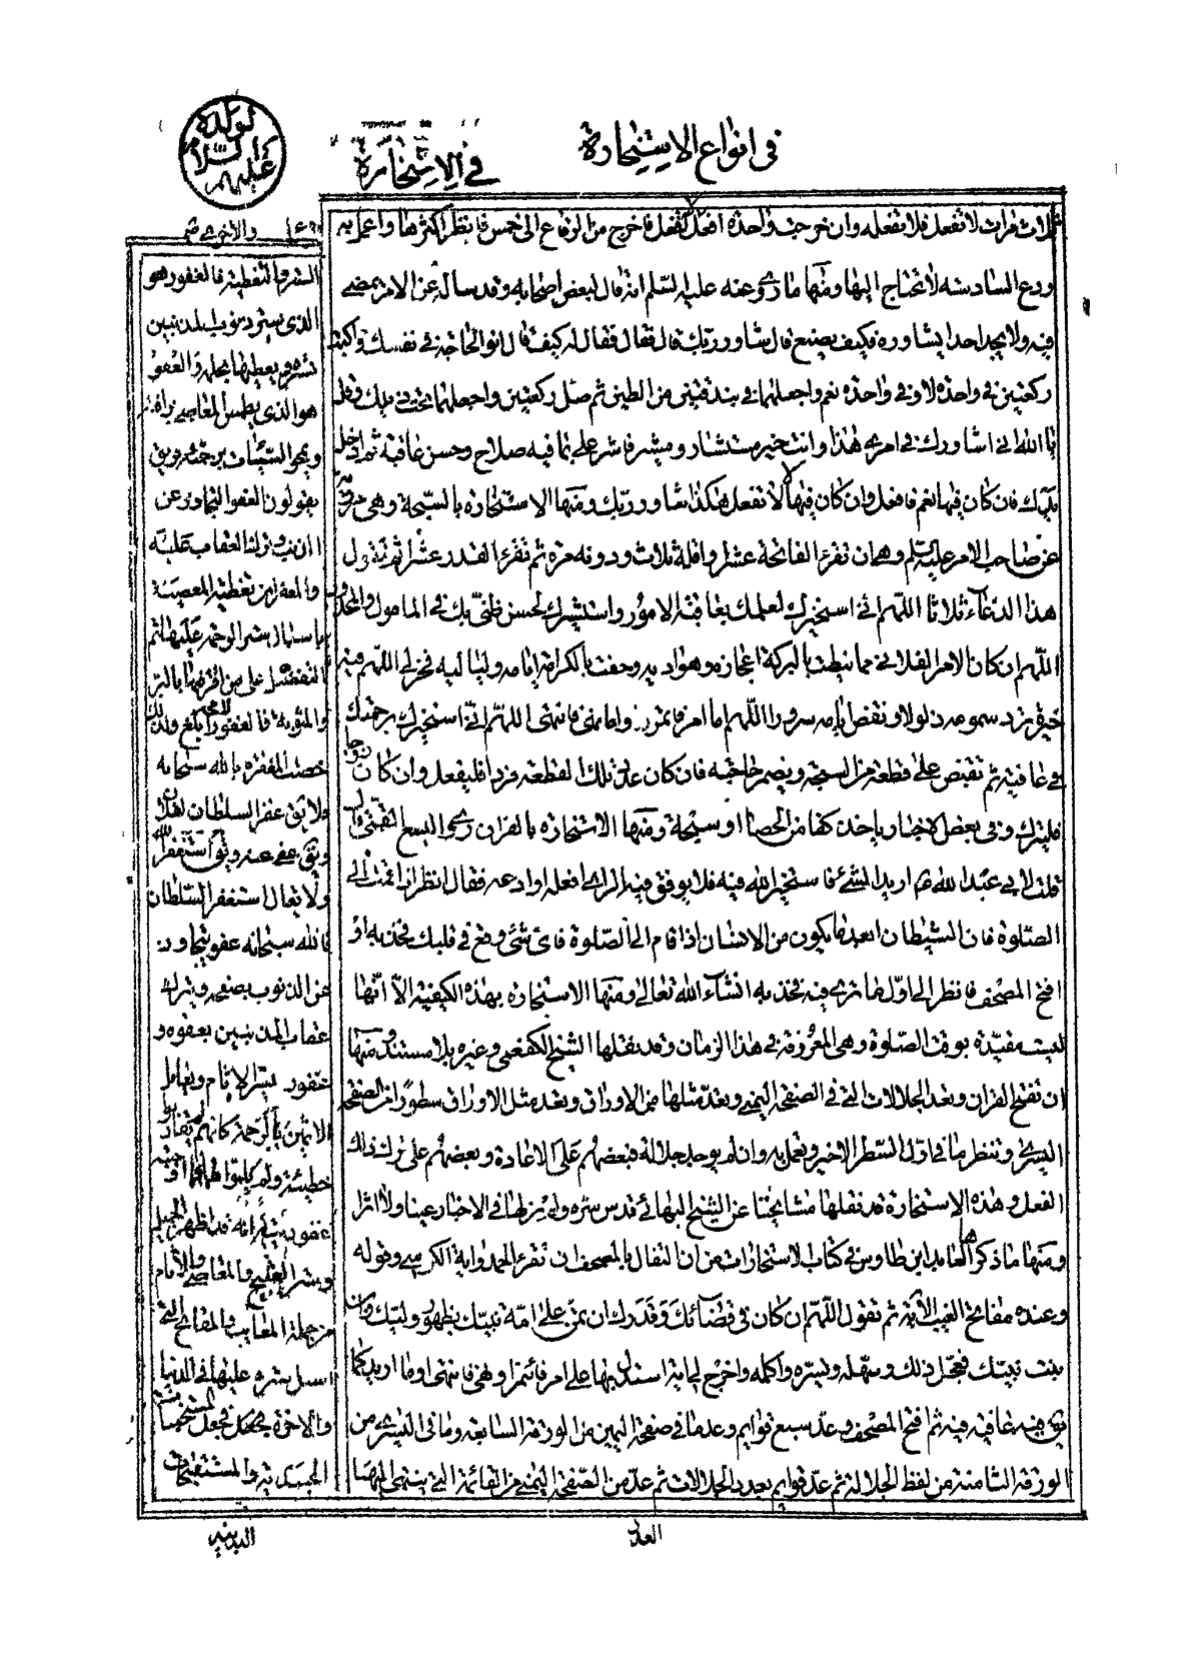 في انواع الاستخارة
في الاستخارة
ثلاث مرات لا تفعل فلا تفعله وان خرجت واحدة افعل لا تفعل فاخرج من الرقاع الى خمس فانظر اكثرها واعمل به
ودع السادسة لا تحتاج اليها ومنها ما روى عنه عليه السلم انه قال لبعض اصحابه وقد ساله عن الامر يمضى
فيه ولا يجد احدا يشاوره فكيف يصنع قال شاور ربك قال فقال له كيف قال انو الحاجة في نفسك واكتب
ركعتين في واحدة لا وفي واحدة نعم واجعلهما في بندقتين من الطين ثم صل ركعتين واجعلهما تحت ذيلك وقل
يا الله اني اشاورك في امري هذا وانت خير مستشار ومشير فاشر علي بما فيه صلاح وحسن عاقبة ثم ادخل
يدك فان كان فيها نعم فافعل وان كان فيها لا لا تفعل هكذا شاور ربك ومنها الاستخارة بالسبحة وهي مروية
عن صاحب الامر عليه السلم وهي ان تقرء الفاتحة عشرا واقله ثلاث ودونه مرة ثم تقرء القدر عشرا ثم تقول
هذا الدعاء ثلاثا اللهم اني استخيرك لعلمك بعاقبة الامور واستشيرك لحسن ظني بك في المامول والمحذور
اللهم ان كان الامر الفلاني مما نيطت بالبركة اعجازه وبواديه وحفت بالكرامة ايامه ولياليه فخر لي اللهم فيه
خيرة ترد شموسه ذلولا وتقعض ايامه سرورا اللهم اما امر فاتمر واما نهي فانتهى اللهم اني استخيرك برحمتك
في عافية ثم تقبض على قطعة من السبحة وتضمر حاجته فان كان عدد تلك القطعة فردا فليفعل وان كان زوجا
فليترك وفي بعض الاخبار ياخذ كفا من الحصا او سبحة ومنها الاستخارة بالقران روى اليسع القمي قال
قلت لابي عبد الله ع اريد الشئ فاستخير الله فيه فلا يوفق فيه الراي افعله او ادعه فقال انظر اذا قمت الى
الصلوة فان الشيطان ابعد ما يكون من الانسان اذا قام الى الصلوة فاي شئ وقع في قلبك فخذ به او
افتح المصحف فانظر الى اول ما ترى فيه فخذ به انشاء الله تعالى ومنها الاستخارة بهذه الكيفية الا انها
ليست مقيدة بوقت الصلوة وهي المعروفة في هذا الزمان وقد نقلها الشيخ الكفعمي وغيره بلا مستند ومنها
ان تفتح القران وتعد الجلالات التي في الصفحة اليمنى وتعد مثلها من الاوراق وتعد مثل الاوراق سطورا من الصفحة
اليسرى وتنظر ما في اول السطر الاخير وتعمل به وان لم يوجد جلالة فبعضهم على الاعادة وبعضهم على ترك ذلك
الفعل وهذه الاستخارة قد نقلها مشايخنا عن الشيخ البهائي قدس سره ولم نر لها في الاخبار عينا ولا اثرا
ومنها ما ذكرها العابد ابن طاوس في كتاب الاستخارات من ان التفال بالمصحف ان تقرء الحمد واية الكرسي وقوله
وعنده مفاتح الغيب الاية ثم تقول اللهم ان كان في قضائك وقدرك ان تمن على امة نبيك بظهور وليك وابن
بنت نبيك فعجل ذلك وسهله ويسره واكمله واخرج لي اية استدل بها على امر فائتمر او نهي فانتهى او ما اريد
في عافية ثم افتح المصحف وعد سبع قوايم وعد ما في صفحة اليمين من الورقة السابعة وما في اليسرى من
الورقة الثامنة من لفظ الجلالة ثم عد قوايم بعدد الجلالات ثم عد من الصفحة اليمنى من القائمة التي ينتهي اليها
العدد
لولده
عليهم السلام
الستر والتغطية فالغفور هو
الذي يستر ذنوب المذنبين
ستره ويغطيها بحلمه والعفو
هو الذي يطمس المعاصي
ويمحو السيئات برحمته
يقولون العفو التجاوز عن
الذنب وترك العقاب عليه
والمغفرة من تغطية المعصية
باسبال ستر الرحمة عليها ثم
التفضل على من اقترفها بالبر
والمثوبة فالغفور ابلغ ولذلك
خصت المغفرة بالله سبحانه
ولا يق غفر السلطان لفلان
ويق عفى عنه ويق استغفر الله
ولا يقال استغفر السلطان
فالله سبحانه عفو يتجاوز
عن الذنوب بصفحه ويترك
عقاب المذنبين بعفوه و
غفور يستر الاثام ويعامل
الاثمين بالرحمة كانهم
خطيئة ولم
اظهر الجميل
وستر القبيح والمعاصي والاثام
من جملة المعايب والقبايح التي
اسبل ستره عليها في الدنيا
والاخرة
الجسدية والمستقبحات
البدنية